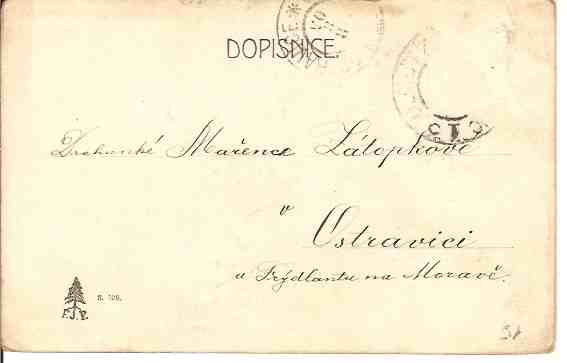 DOPISNICE.
Drahunké Mařence Zátopkové
v
Ostravici
u Frýdlantu na Moravě.
F.J.P.
S. 109.